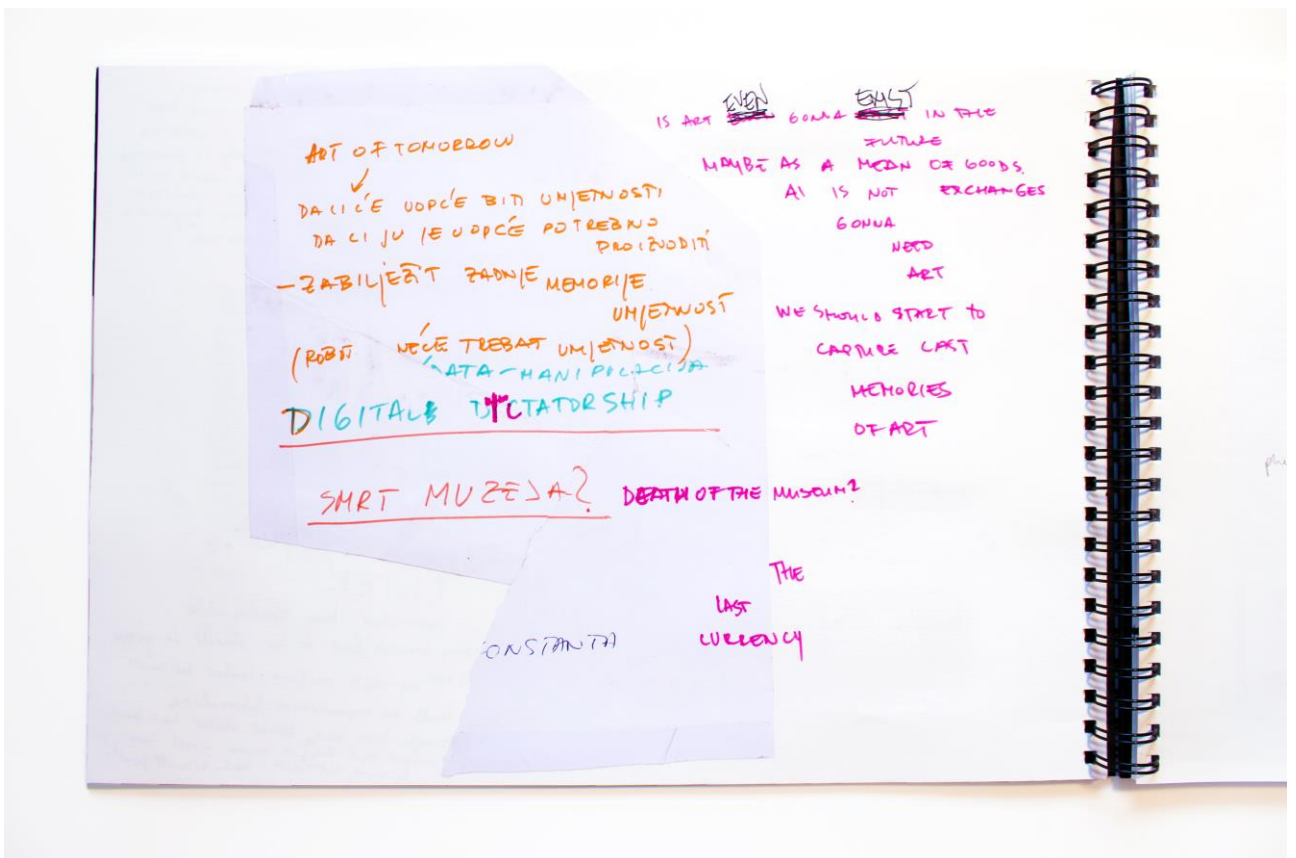 ART OF TOMORROW
DA LI ĆE UOPĆE BITI UMJETNOSTI
DA LI JU JE UOPĆE POTREBNO
PROIZVODITI
- ZABILJEŽIT ZADNJE MEMORIJE
UMJETNOST
(ROBOTI NEĆE TREBAT UMJETNOST)
DATA-MANIPULACIJA
DIGITAL DICTATORSHIP
SMRT MUZEJA?
ONSTANTA
IS ART EVEN GONNA EXIST IN THE
FUTURE
MAYBE AS A MEAN OF GOODS
AI IS NOT EXCHANGES
GONNA
NEED
ART
WE SHOULD START TO
CAPTURE LAST
MEMORIES
OF ART
DEATH OF THE MUSEUM?
THE
LAST
CURRENCY